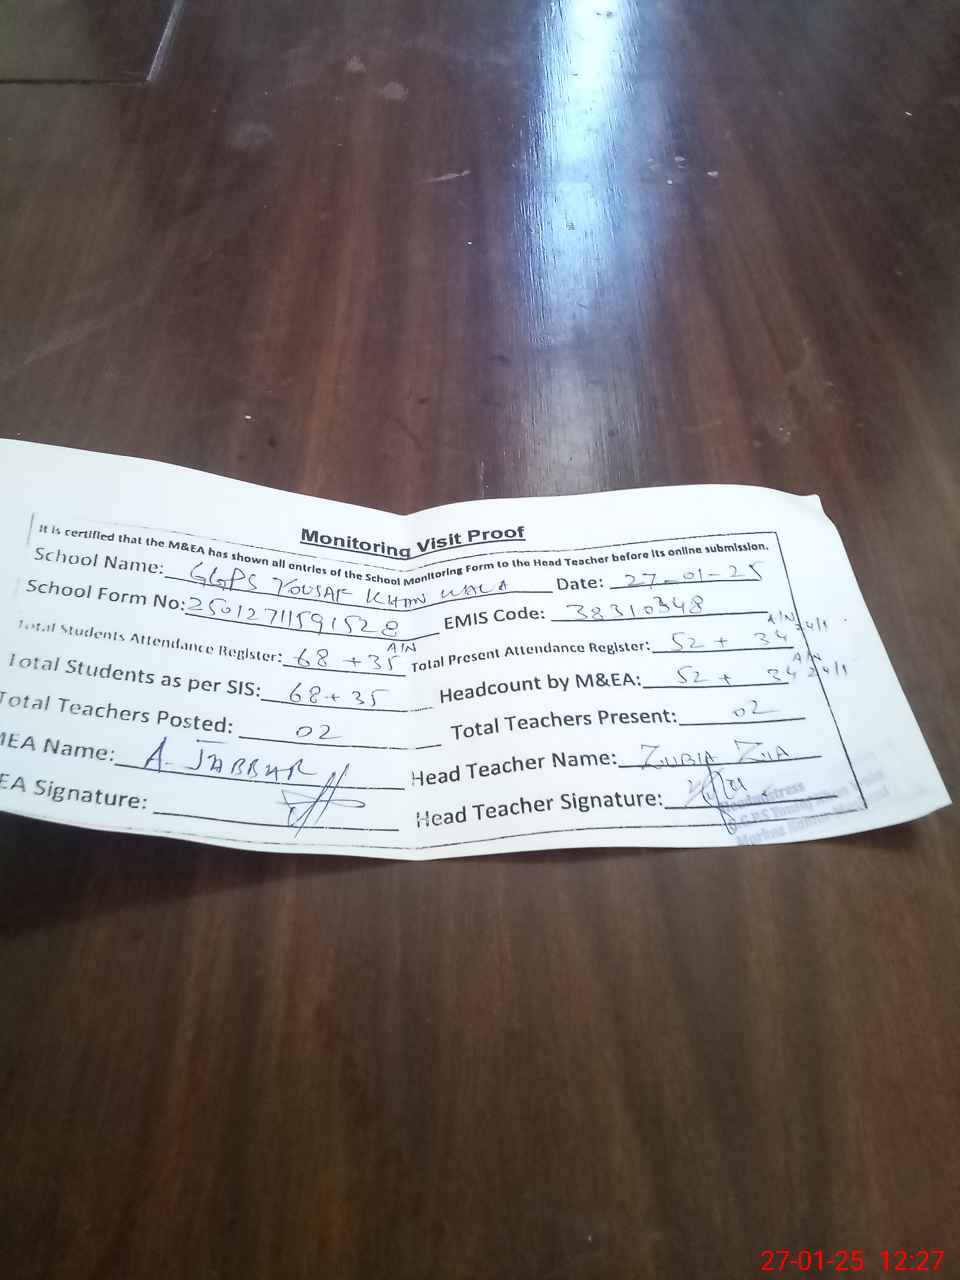 Monitoring Visit Proof
It is certified that the M&EA has shown all entries of the School Monitoring Form to the Head Teacher before its online submission.
School Name: GGPS YOUSAF KHAN WALA Date: 27-01-25
School Form No: 25012711591528 EMIS Code: 38310348
Total Students Attendance Register: 68 + 35 A/N Total Present Attendance Register: 52 + 34 A/N 24/1
Total Students as per SIS: 68 + 35 Headcount by M&EA: 52 + 34 A/N 24/1
Total Teachers Posted: 02 Total Teachers Present: 02
MEA Name: A. JABBAR Head Teacher Name: ZUBIA ZIA
EA Signature: Head Teacher Signature:
27-01-25 12:27